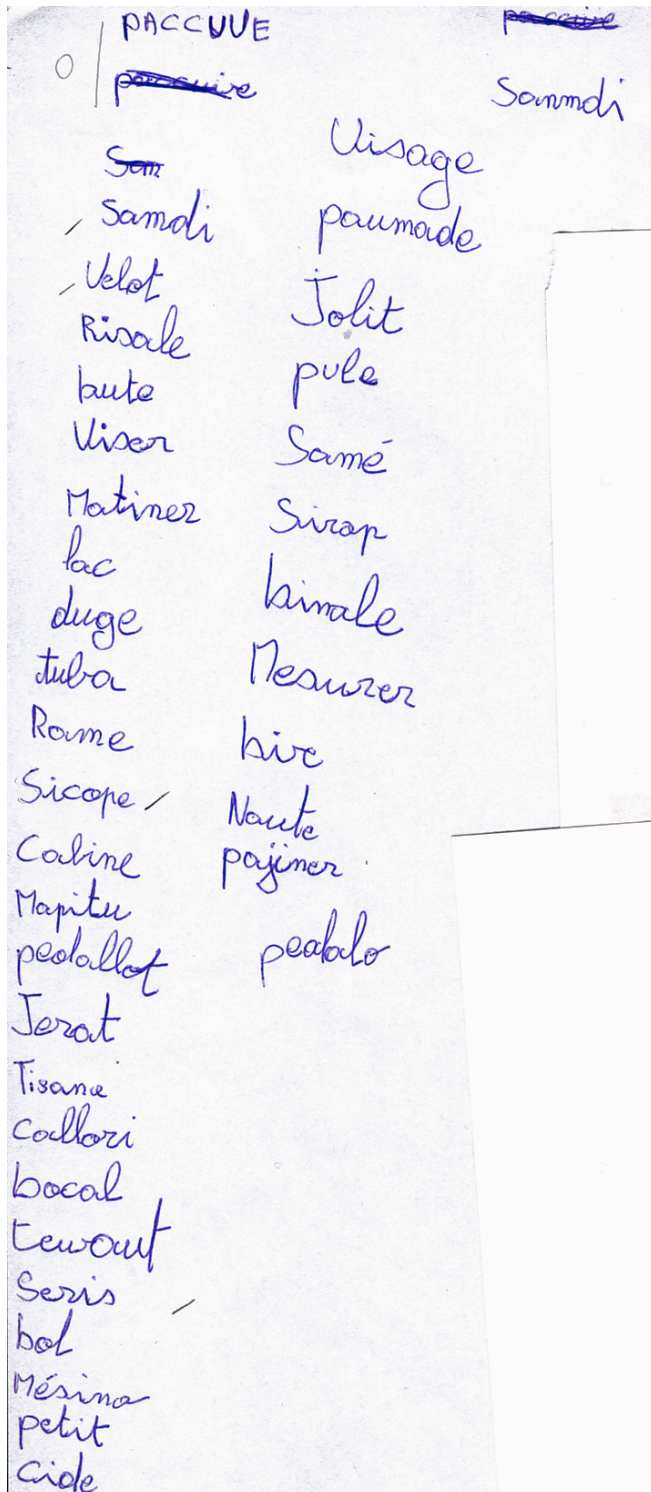 PACCUUE
Samdi
Velot
Risale
bute
Viser
Matiner
lac
duge
tuba
Rame
Sicope
Cabine
Mapitu
pedallot
Jerat
Tisane
Callori
bocal
Seris
bol
Mésina
petit
cide
Sanmdi
Visage
paumade
Jolit
pule
Samé
Sirap
binale
Mesurer
bir
Naute
pajiner